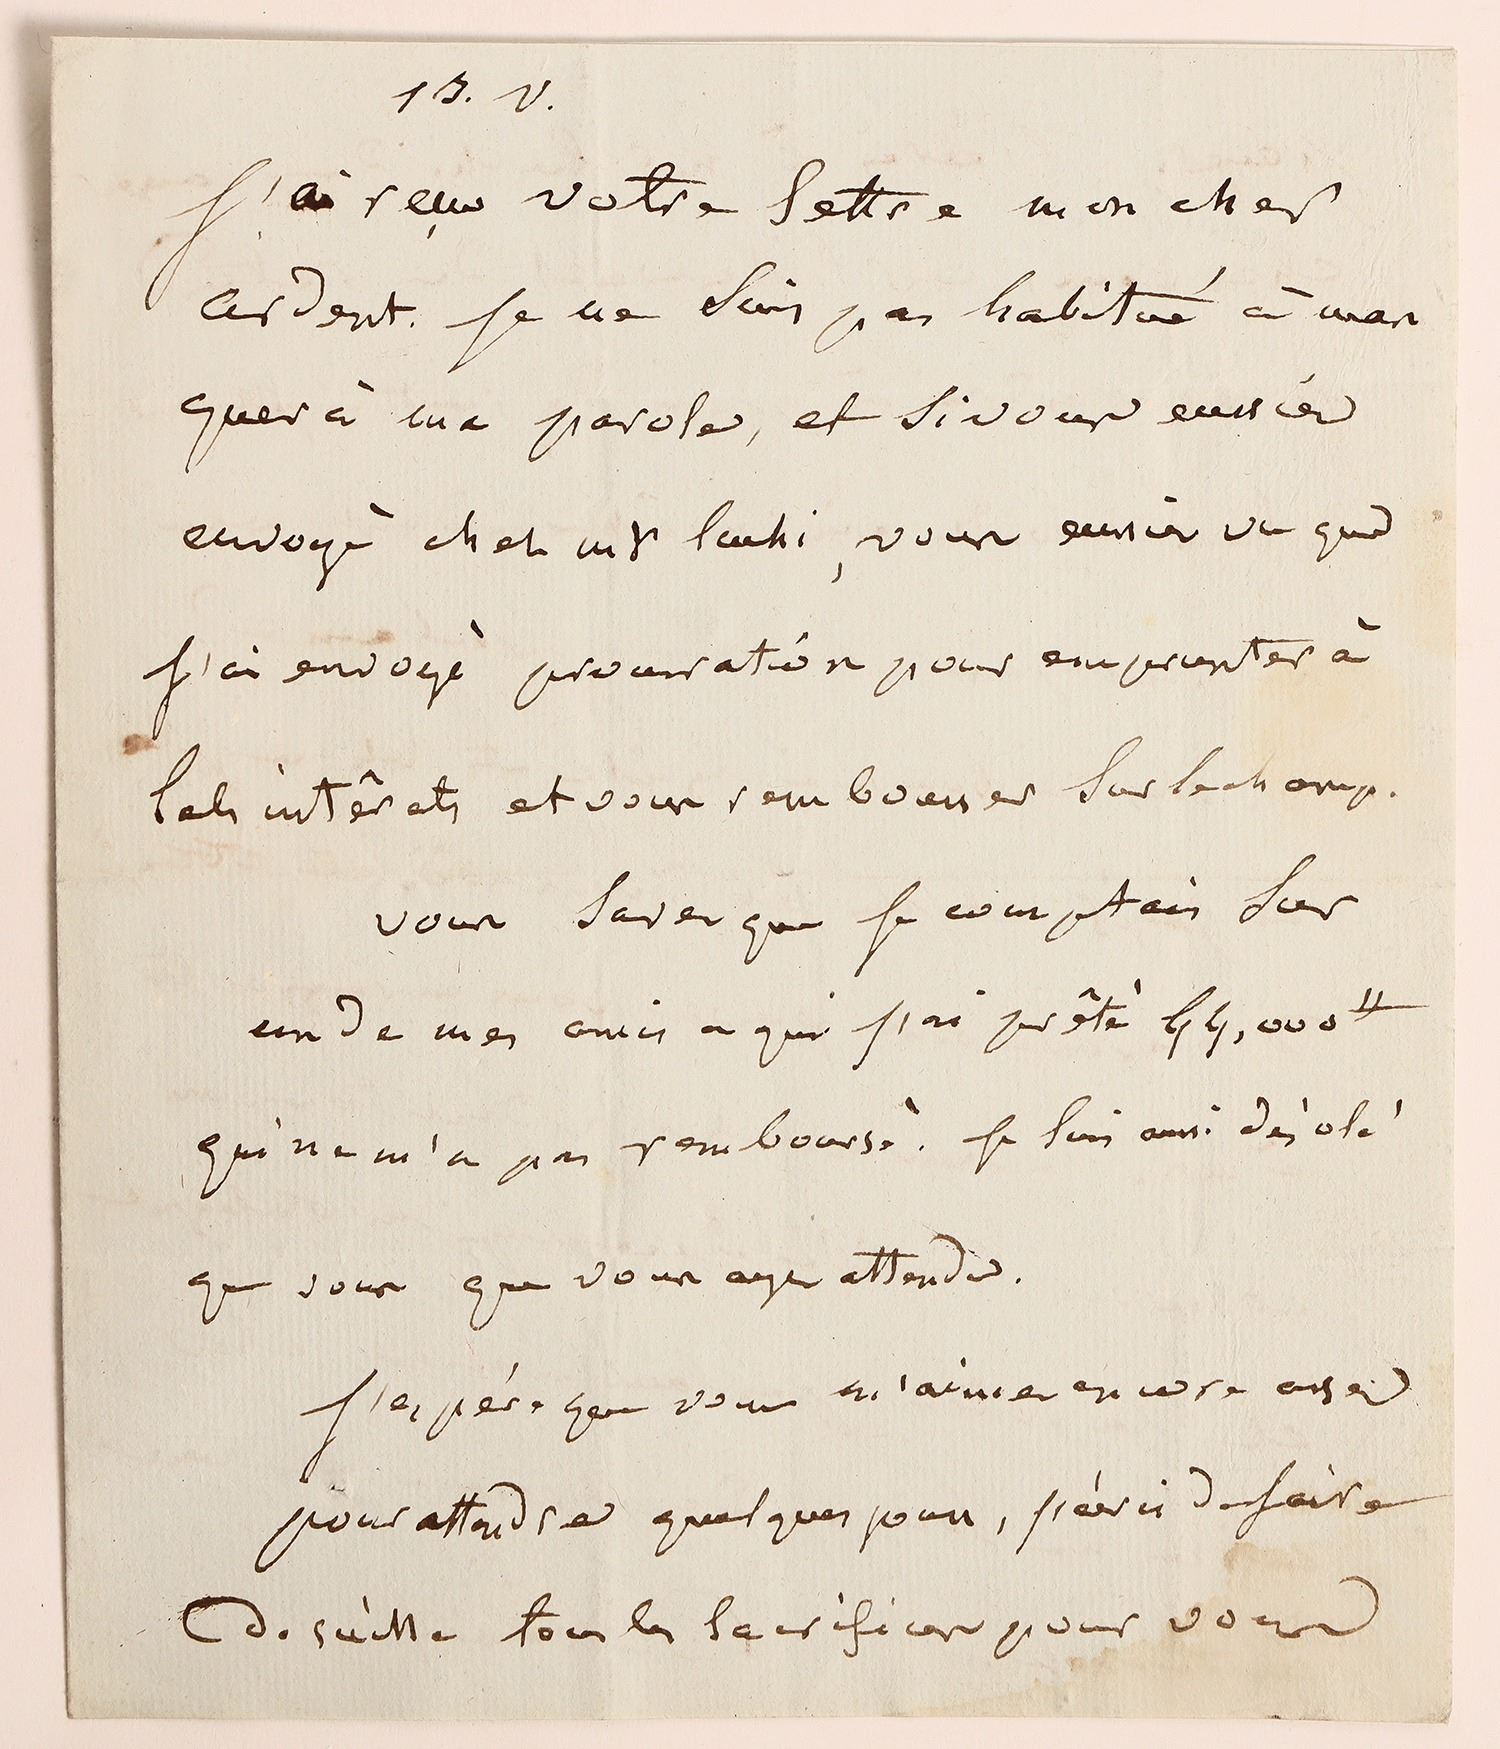 13. V.
J'ai reçu votre lettre mon cher
ardent. je ne suis pas habitué à man
quer à ma parole, et si vous eussiés
envoyé chez mr vous eussiés vu que
j'ai envoyé procuration pour emprunter à
intérêts et vous rembourser sur le champ.
vous savez que je comptais sur
un de mes amis a qui j'ai prêté 44,000 ₶
qui ne m'a pas remboursé. je suis aussi désolé
que vous que vous ayez attendu.
j'espére que vous m'aimez encore assez
pour attendre quelques jours, j'écris de faire
de suitte tous les sacrifices pour vous